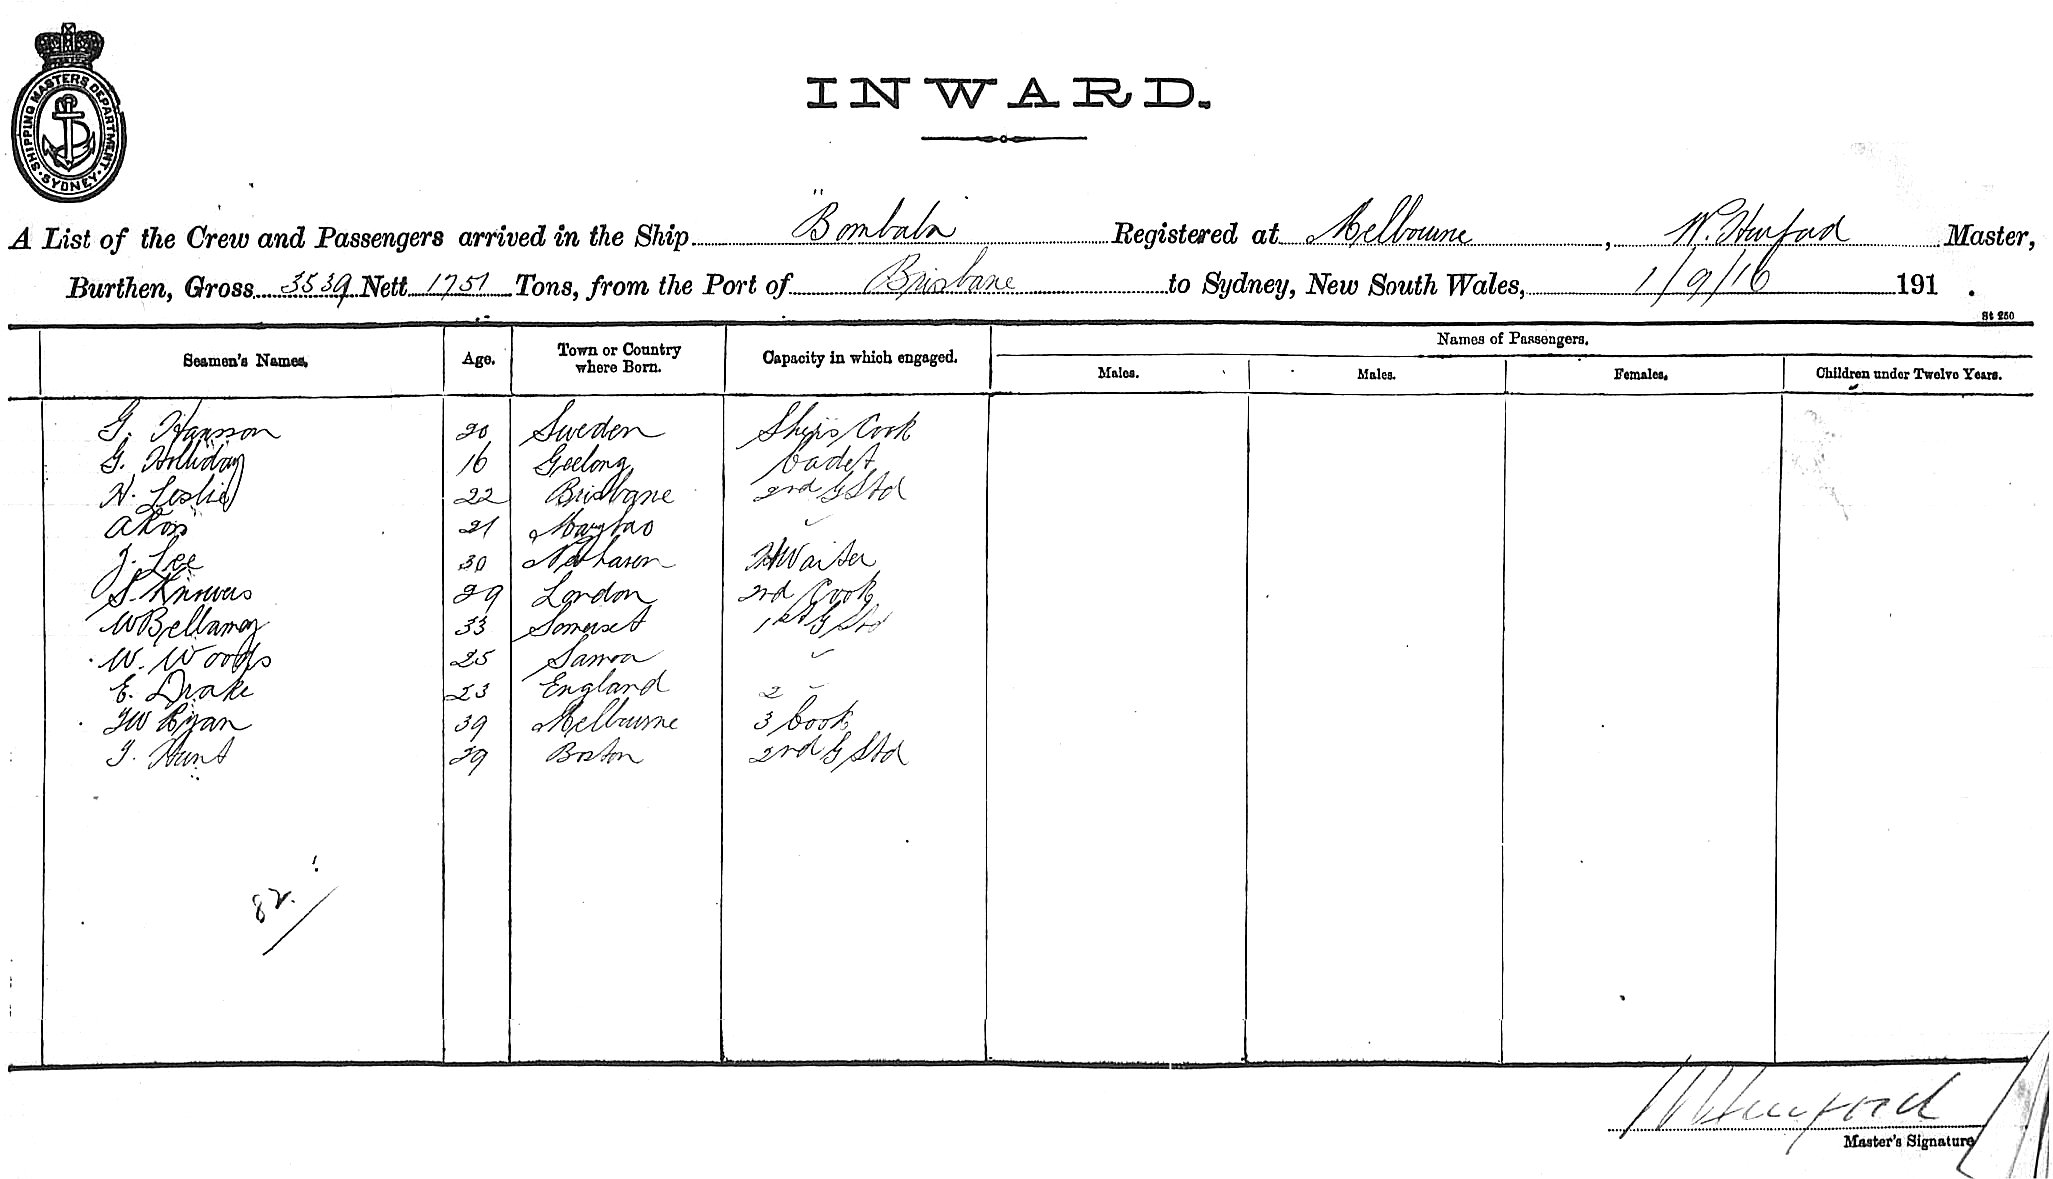 SHIPPING MASTERS DEPARTMENT. SYDNEY.
INWARD.
A List of the Crew and Passengers arrived in the Ship "Bombala Registered at Melbourne, W. Hurford Master,
Burthen, Gross 3539 Nett 1751 Tons, from the Port of Brisbane to Sydney, New South Wales, 1/9/16 191 .
St 250
Seamen's Names. Age. Town or Country where Born. Capacity in which engaged. Names of Passengers.
Males. Males. Females. Children under Twelve Years.
G. Hansson 20 Sweden Ships Cook
G. Holliday 16 Geelong Cadet
H. Leslie 22 Brisbane 2nd G Std
A Ross 21 Marybro "
J. Lee 30 Waiter
S. 29 London 2nd Cook
W Bellamy 33 Somerset 1st G Std
W. Woods 25 Samoa "
E. Drake 23 England 2 "
Ryan 39 Melbourne 3 Cook
T. Hunt 29 Boston 2nd G Std
82.
W Hurford
Master's Signature